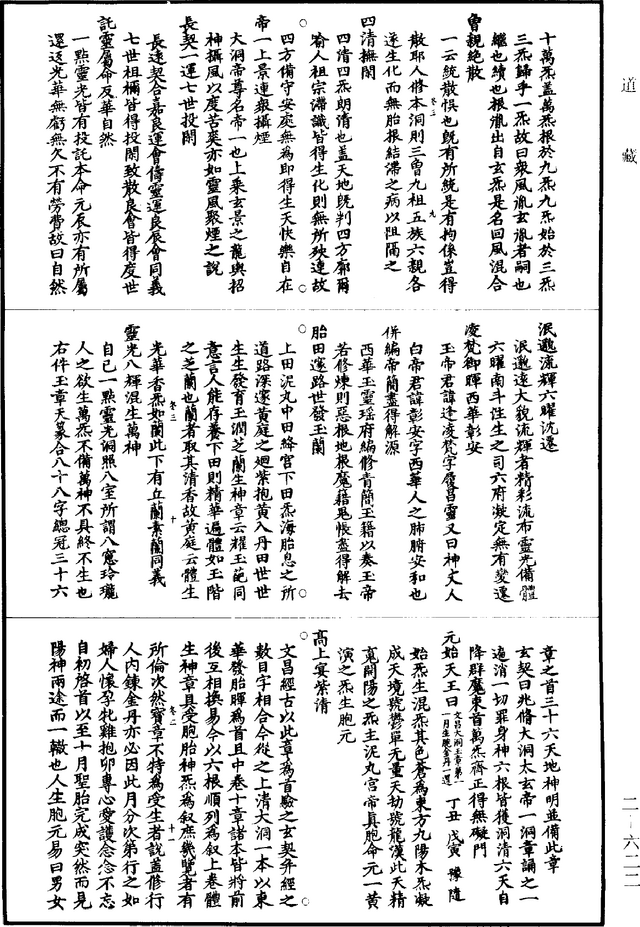 十萬炁蓋萬炁根於九炁九炁始於三炁
三炁歸乎一炁故曰衆風胤玄胤者嗣也
繼也續也根胤出自玄炁是名回風混合
曾親絶散
一云統散惧也旣有所統是有拘係豈得
散耶人修本洞則三曾九祖五族六親各
遂生化而無胎根結滯之病以阻隔之
四清撫閑
四清四炁朗清也蓋天地旣判四方廓爾
裔人祖宗滯讖皆得生化則無所殃連故
四方備守安處無為即得生天快樂自在
帝一上景連衆攝煙
大洞帝尊名帝一也上乘玄景之龍輿招
神攝風以度苦爽亦如靈風聚煙之說
長契一運七世投閑
長遠契合嘉良運會儔靈運良辰會同義
七世祖禰皆得投閑致散良會皆得度世
託靈屬命反華自然
一點靈光皆有投託本命元辰亦有所屬
還返光華無虧無欠不有勞費故曰自然
泯邈流輝六曜沈遷
泯邈遠大貌流輝者精彩流布靈光備體
六曜南斗注生之司六府凝定無有變遷
凌梵御暉西華彰安
玉帝君諱逢凌梵字履昌靈又曰神丈人
白帝君諱彰安字西華人之肺腑安和也
併編帝簡盡得解源
西華玉靈瑶府編修青簡玉籍以奏玉帝
若修煉則惡根地根魔籍鬼帳盡得解去
胎田邃路世發玉蘭
上田泥丸中田絳宮下田炁海胎息之所
道路深邃黃庭之廻紫抱黃入丹田世世
生生發育玉潤芝蘭生神章云耀玉葩同
意言人能存養下田則精華遍體如玉階
之芝蘭也蘭者取其清香故黃庭云體生
光華香炁如蘭此下有丘蘭素蘭同義
靈光八輝混生萬神
自己一點靈光洞照八室所謂八窓玲瓏
人之欲生萬炁不備萬神不具終不生也
右件玉章天篆合八十八字總冠三十六
章之首三十六天地神明並備此章
玄契曰兆修大洞太玄帝一洞章誦之一
遍消一切罪身神六根皆獲洞清六天自
降群魔束首萬炁齊正得無礙門
元始天王曰 文昌大洞玉章第一 一月生胞金丹一還 丁丑 戊寅 豫 隨
始炁生混炁其色蒼為東方九陽木炁凝
成天境號鬱單无量天劫號龍漢此天精
寃開陽之炁主泥丸宮帝真胞命元一黄
演之炁生胞元
高上宴紫清
文昌經古以此章為首驗之玄契并經之
數目字相合今從之上清大洞一本以東
華發胎暉為首且中卷十章諸本皆將前
後互相換易今以六根順列為叙上卷體
生神章具受胞胎神炁為叙庶幾覽者有
所倫次然寶章不特為受生者說蓋修行
人内鍊金丹亦必因此月分次第行之如
婦人懷孕牝雞抱卵專心愛護念念不忘
自初啓首以至十月聖胎完成突然而見
陽神兩途而一轍也人生胞元易曰男女
道藏
二-六二二